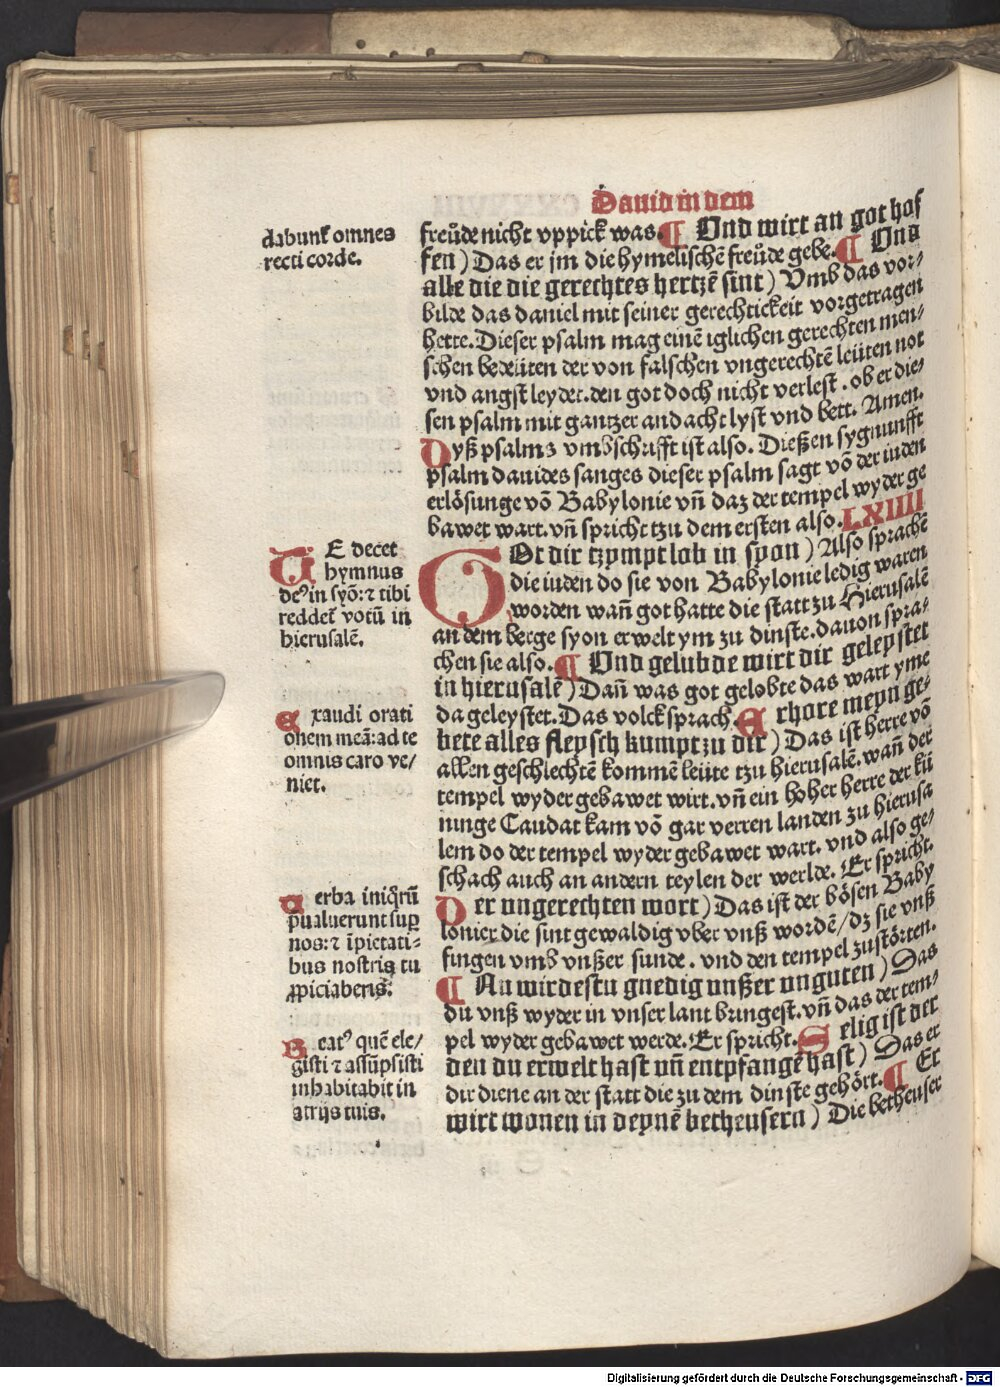 Dauid in dem
dabunt᷑ omnes
recti corde.
freůde nicht vppick was. ¶ Vnd wirt an got hof
fen) Das er jm die hymelischē freůde gebe. ¶ Vnd
alle die die gerechtes hertzē sint) Vmb das vor⸗
bilde das daniel mit seiner gerechtickeit vorgetragen
hette. Dieser psalm mag einē iglichen gerechten men⸗
schen bedeüten der von falschen vngerechtē leüten not
vnd angst leydet. den got doch nicht verlest. ob er die⸗
sen psalm mit gantzer andacht lyst vnd bett. Amen.
Dyß psalms vmbschrifft ist also. Dießen sygnunfft
psalm dauides sanges dieser psalm sagt vō der iuden
erlösunge vō Babylonie vn̄ daz der tempel wyder ge
bawet wart. vn̄ spricht tzu dem ersten also. LXIIII
TE decet
hymnus
deꝰ in syō: ⁊ tibi
reddet᷑ votū in
hierusalē.
GOt dir tzympt lob in syon) Also sprachē
die iuden do sie von Babylonie ledig waren
worden wan̄ got hatte die statt zu Hierusalē
an dem berge syon erwelt ym zu dinste. dauon spra⸗
chen sie also. ¶ Vnd gelubde wirt dir geleystet
in hierusalē) Dan̄ was got gelobte das wart yme
da geleystet. Das volck sprach. Erhore meyn ge⸗
bete alles fleysch kumpt zu dir) Das ist herre vō
allen geschlechtē kommē leüte tzu hierusalē. wan̄ der
tempel wyder gebawet wirt. vn̄ ein hoher herre der kü
ninge Caudat kam vō gar verren landen zu hierusa
lem do der tempel wyder gebawet wart. vnd also ge⸗
schach auch an andern teylen der werlde. Er spricht.
Exaudi orati
onem meā: ad te
omnis caro ve⸗
niet.
Verba iniqͥrū
p̄ualuerunt suꝑ
nos: ⁊ īpietati⸗
bus nostris tu
ꝓpiciaberis.
Der vngerechten wort) Das ist der bösen Baby
lonier die sint gewaldig vber vnß wordē/ dz sie vnß
fingen vmb vnßer sunde. vnd den tempel zustörten.
¶ Nu wirdestu gnedig vnßer vnguten) Das
du vnß wyder in vnser lant bringest. vn̄ das der tem⸗
pel wyder gebawet werde. Er spricht. Selig ist der
den du erwelt hast vn̄ entpfangē hast) Das er
dir diene an der statt die zu dem dinste gehört. ¶ Er
wirt wonen in deynē betheusern) Die betheuser
Beatꝰ quē ele⸗
gisti ⁊ assūpsisti
inhabitabit in
atrijs tuis.
Digitalisierung gefördert durch die Deutsche Forschungsgemeinschaft - DFG